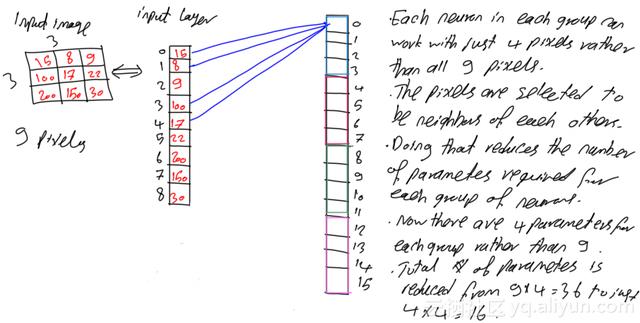 Input image
3
3
15 8 9
100 17 22
200 150 30
9 pixels
input layer
0 15
1 8
2 9
3 100
4 17
5 22
6 200
7 150
8 30
0
1
2
3
4
5
6
7
8
9
10
11
12
13
14
15
. Each neuron in each group can
work with just 4 pixels rather
than all 9 pixels.
. The pixels are selected to
be neighbors of each others.
. Doing that reduces the number
of parametes required for
each group of neurons.
. Now there are 4 parameters for
each group rather than 9.
. Total # of parametes is
reduced from 9x4=36 to just
4x4=16.
云栖社区 yq.aliyun.com